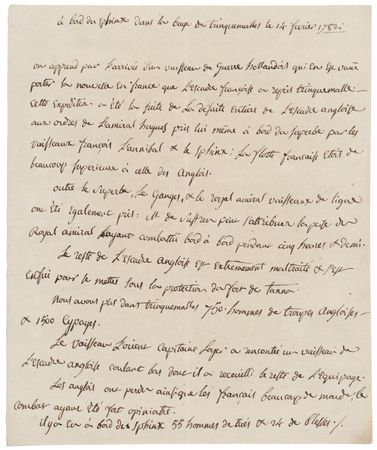 à bord du sphinx dans la baye de trinquemalles le 14 fevrier 1782.
on apprend par l'arrivée d'un vaisseau de Guerre hollandois qui en est venu
porter la nouvelle en france que L'escadre françoise a repris trinquemalle
Cette Expedition a été la suite de la défaite entiere de L'escadre angloise
aux ordres de L'amiral hugues pris lui même à bord du superbe par les
vaisseaux françois L'annibal & le sphinx : La flotte francaise etoit de
beaucoup superieure à celle des Anglois.
outre le superbe, Le Ganges, & le royal amiral vaisseaux de ligne
ont été également pris : M. de Suffren peut s'attribuer la perte du
Royal amiral ayant combattu bord à bord pendant cinq heures & demi.
Le reste de L'escadre Angloise est extremement maltraité & s'est
enfui par se mettre sous la protection du fort de tanna.
Nous avons pris dans trinquemalles 750 hommes de troupes Angloises
& 1500 Cypayes.
Le vaisseau L'orient Capitaine a rencontré un vaisseau de
L'escadre angloise coulant bas dont il a recueilli le reste de L'equipage.
Les anglois ont perdu ainsi que les français beaucoup de monde, le
combat ayant été fort opiniatre.
il y a eu à bord du sphinx 55 hommes de tués & 24 de blessés.